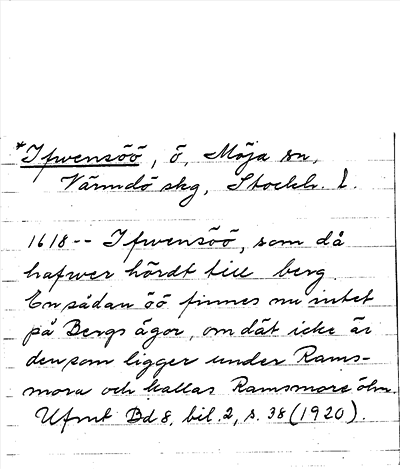 *Ifwensöö, ö, Möja sn,
Värmdö skg, Stockh. l.
1618-- Ifwensöö, som då
hafwer hördt till berg
En sådan öö finnes nu intet
på Bergs ägor, om dät icke är
den som ligger under Rams-
mora och kallas Ramsmore ölm.
Ufmt Bd 8, bil. 2, s. 38 (1920).